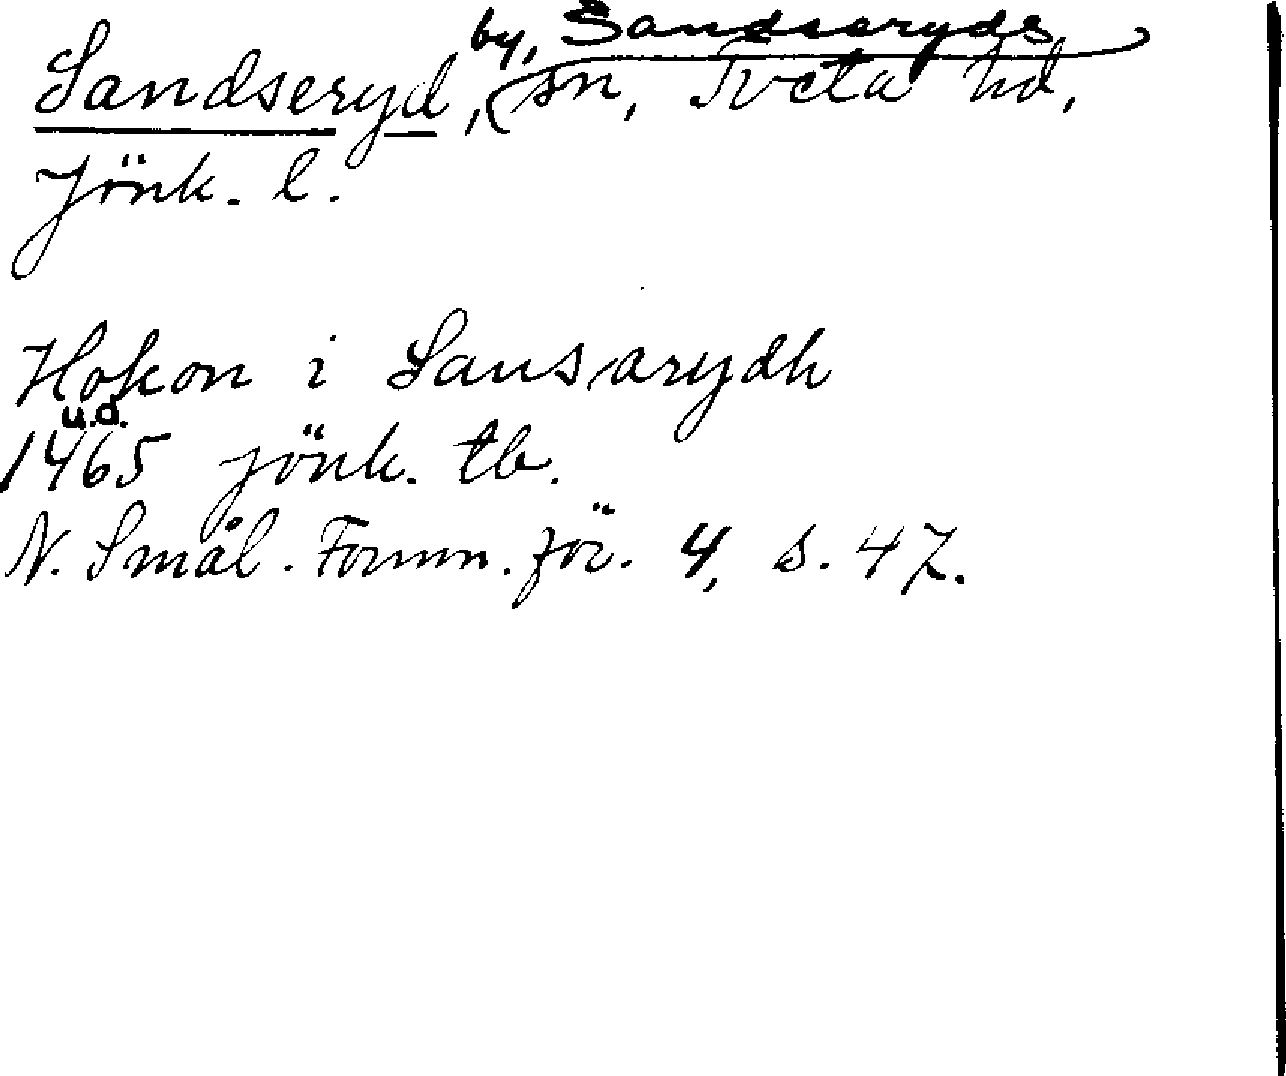 by, Sandseryds
Sandseryd, sn, Tveta hd,
Jönk. l.
Hokon i Sansarydh
u.d.
1465 jönk. tb.
N. Smål. Fornm. för. 4, s. 47.